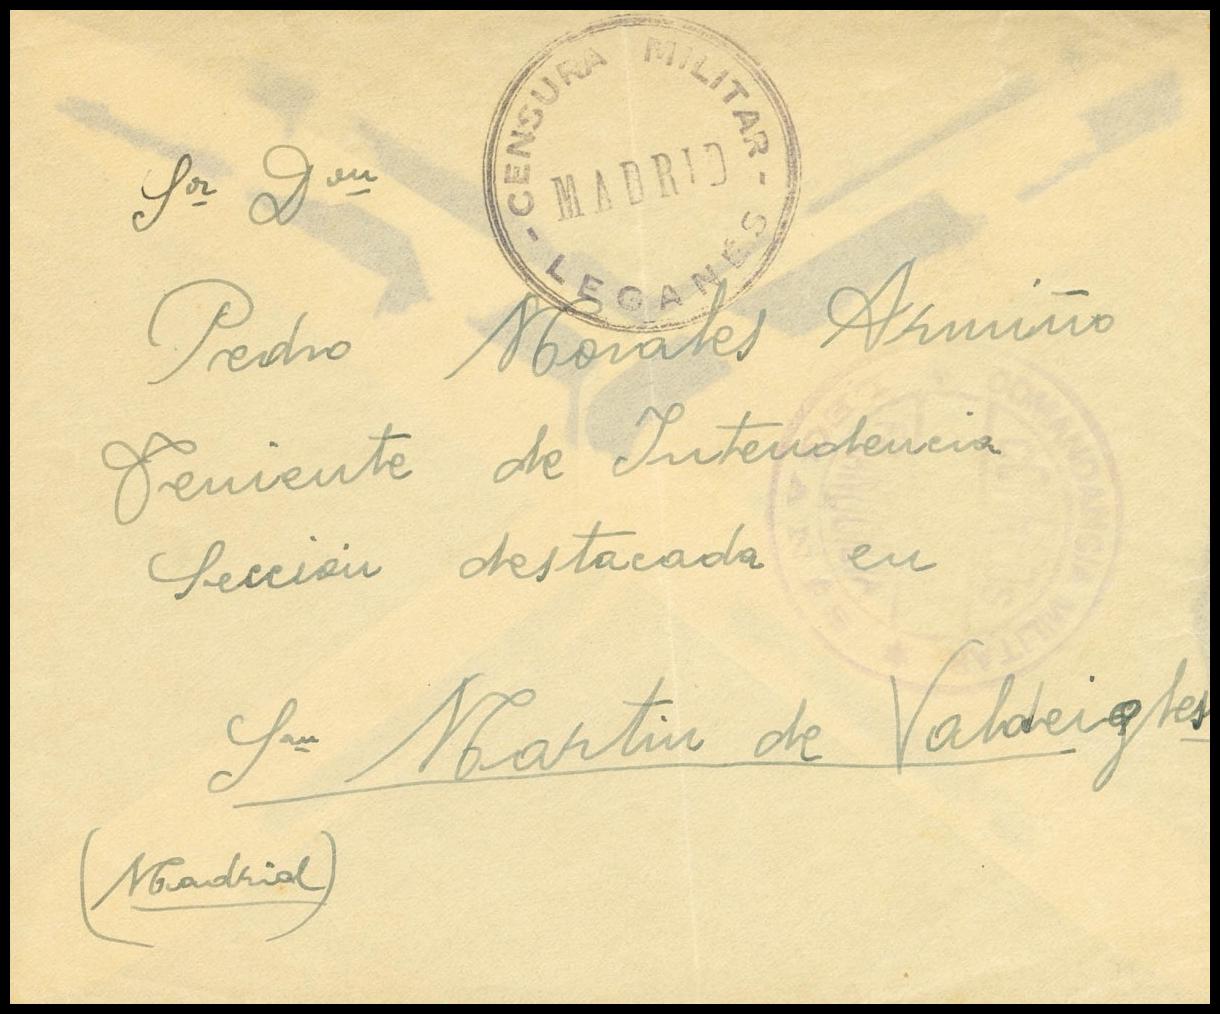 - CENSURA MILITAR -
MADRID
LEGANÉS
Sor Don
Pedro Morales Armiño
Teniente de Intendencia
Sección destacada en
San Martin de Valdeigles
(Madrid)
COMANDANCIA MILITAR